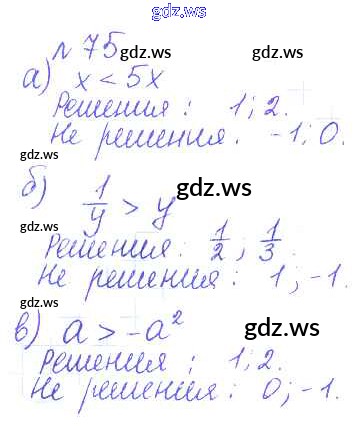 gdz.ws
№ 75
gdz.ws gdz.ws
а) x < 5x
Решения: 1; 2.
Не решения. -1; 0.
gdz.ws gdz.ws
б) 1/y > y gdz.ws
Решения: 1/2; 1/3.
gdz.ws gdz.ws
Не решения: 1; -1.
в) a > -a² gdz.ws
Решения: 1; 2.
gdz.ws gdz.ws
Не решения: 0; -1.